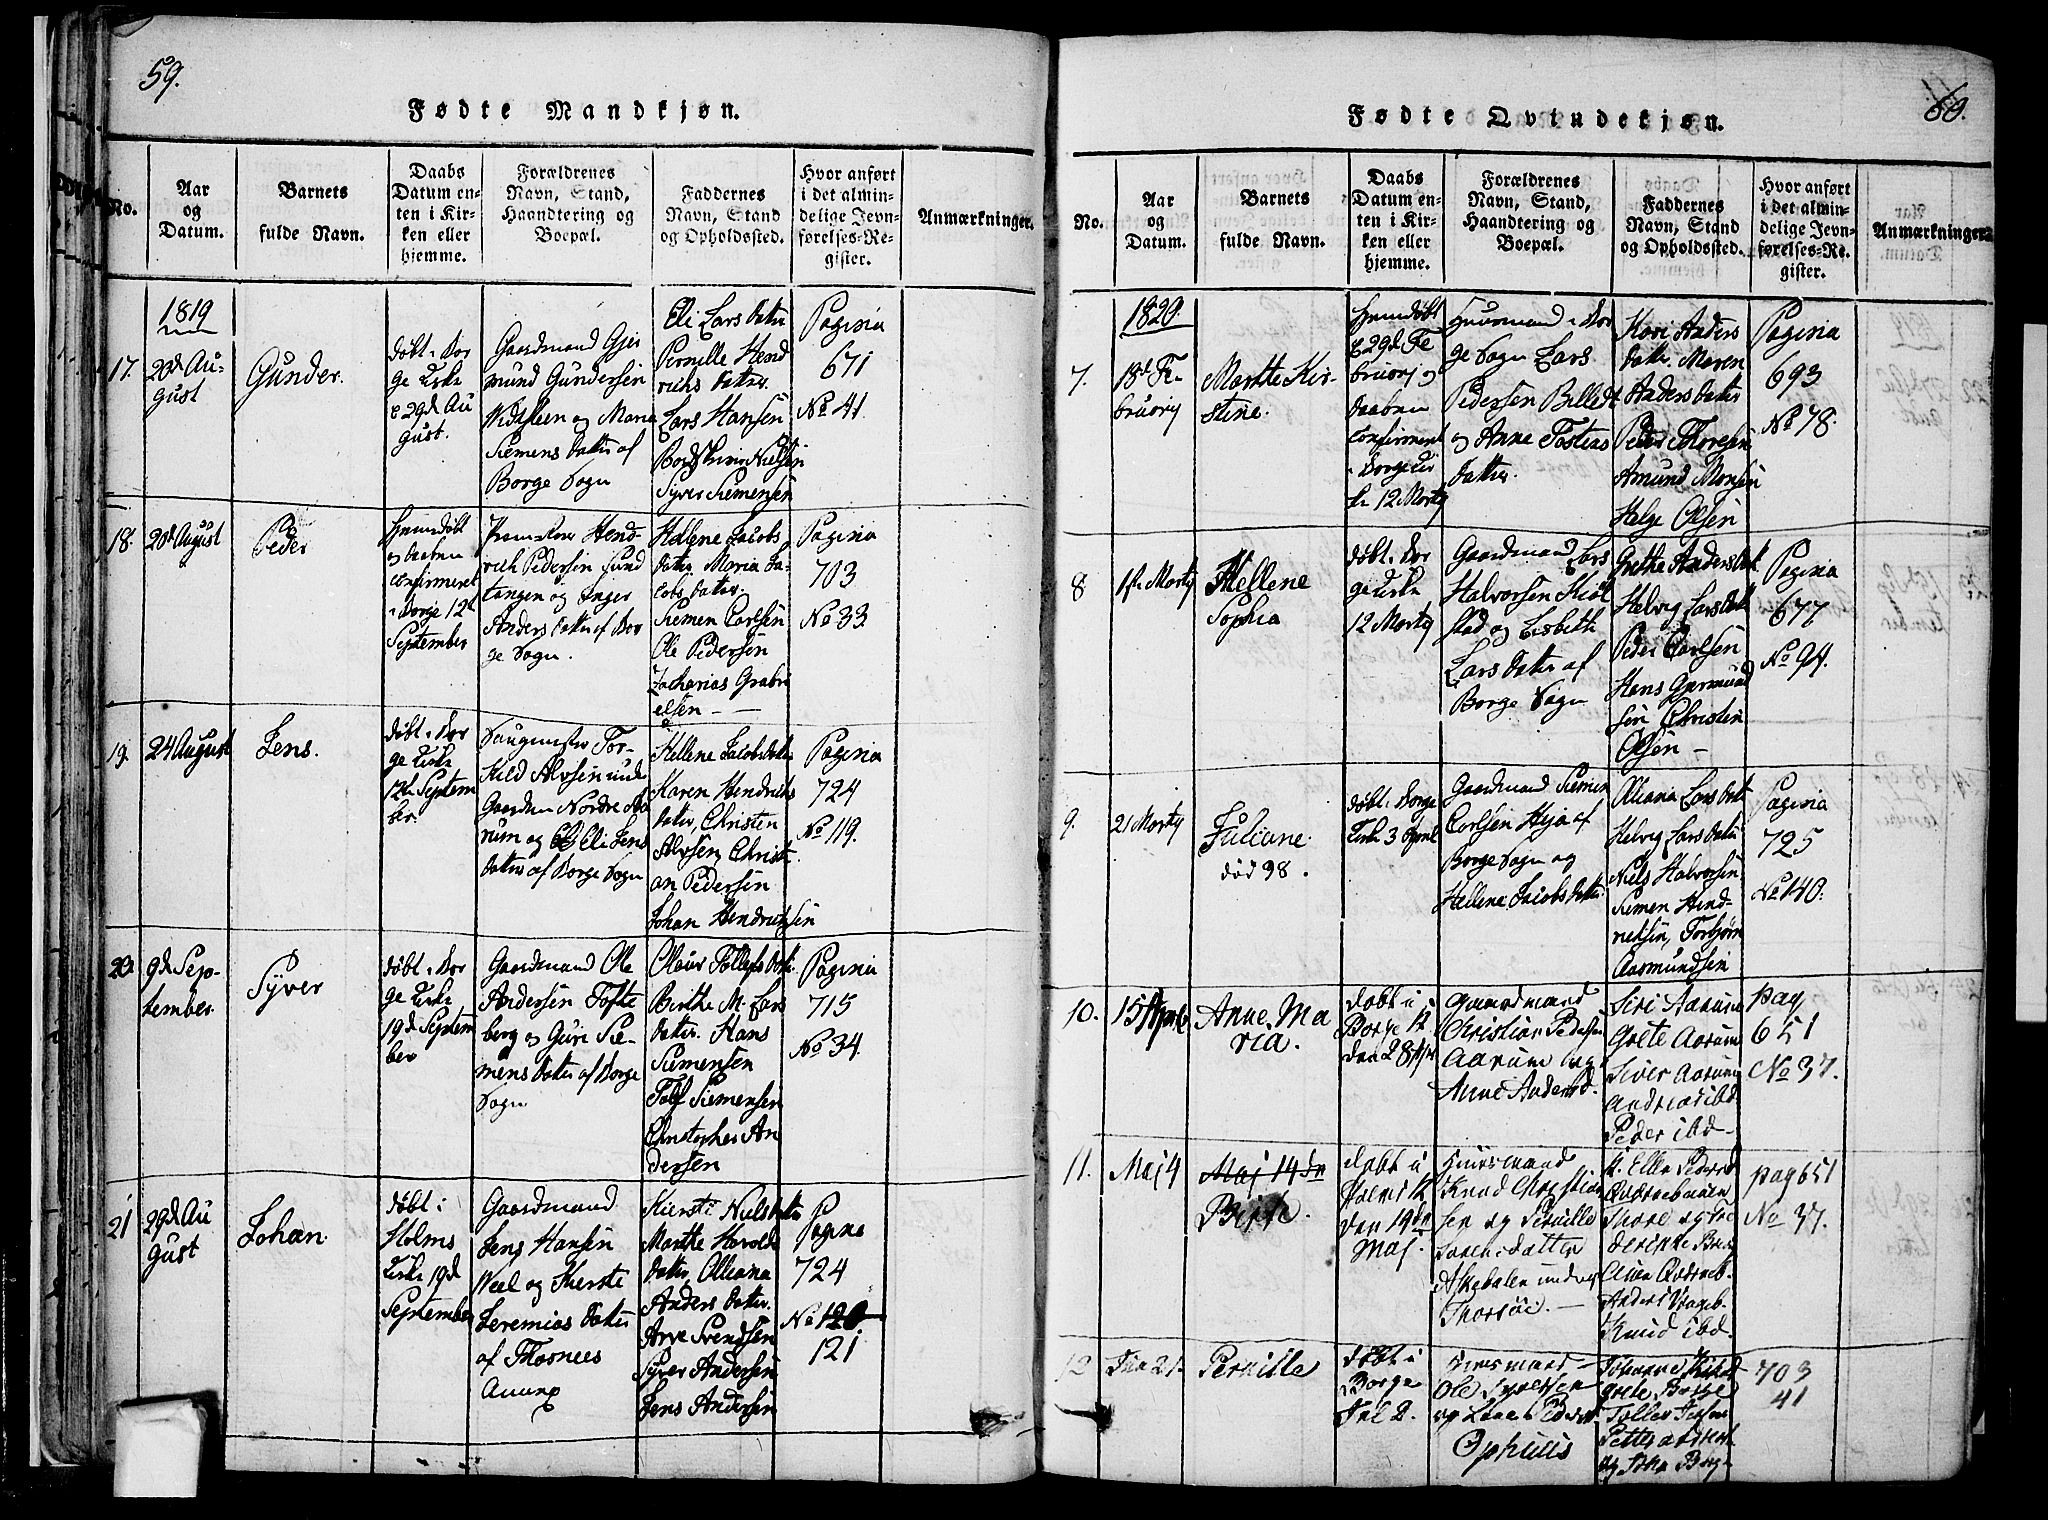 59.
Fødte Mandkjøn.
No.
Aar
og
Datum.
Barnets
fulde Navn.
Daabs
Datum en-
ten i Kir-
ken eller
hjemme.
Forældrenes
Navn, Stand,
Haandtering og
Boepæl.
Faddernes
Navn, Stand
og Opholdssted.
Hvor anført
i det almin-
delige Jevn-
førelses-Re-
gister.
Anmærkninger.
1819
17.
28d Au-
gust
Gunder.
døbt i Bor
ge Kirke
29d Au
gust.
Gaardmand Gjer
mund Gundersen
og Maria
Siemens datter af
Borge Sogn
Eli Lars datter
Pernille Hend
richs datter.
Lars Hansen
Nielsen
Syver Siemensen
Pagina
671
No 41.
18.
20d August
Peder
hjemdøbt
og daaben
confirmeret
i Borge 12te
September
Hend-
rich Pedersen Sund
tangen og Inger
Anders datter af Bor
ge Sogn.
Hellene Jacobs
datter Maria Ja-
cobs datter.
Siemen Carlsen
Ole Pedersen
Zacharias Gabri
elsen —
Pagina
703
No 33.
19.
24 August
Jens.
døbt i Bor
ge Kirke
12te Septem
ber.
Tor-
kild Alvsen under
Gaarden Nordre Aa
rum og Eli Jens
datter af Borge Sogn
Hellene Jacobsdatter
Karen Hendrichs
datter, Christen
Alvsen, Christi
an Pedersen
Johan Hendrichsen
Pagina
724
No 119.
20.
9d Sep-
tember.
Syver
døbt i Bor
ge Kirke
19d Septem
ber
Gaardmand Ole
Andersen Tofte
berg og Guri Sie-
mens datter af Borge
Sogn
Olaur Tollefs datter
Birthe M. Lars
datter. Hans
Siemensen
Tolf Siemensen
Christopher An
dersen
Pagina
715
No 34.
21
29d Au
gust
Johan.
døbt i
Holms
Kirke 19d
September
Gaardmand
Jens Hansen
Weel og Kierste
Jeremias datter
af Thorsnees
Annex
Kiersti Nielsdatter
Marthe Harolds
datter, Olleana
Anders datter.
Arve Svendsen
Syver Andersen
Jens Andersen
Pagina
724
No 120
121
60.
Fødte Qvindekjøn.
No.
Aar
og
Datum.
Barnets
fulde Navn.
Daabs
Datum en-
ten i Kir-
ken eller
hjemme.
Forældrenes
Navn, Stand,
Haandtering og
Boepæl.
Faddernes
Navn, Stand
og Opholdssted.
Hvor anført
i det almin-
delige Jevn-
førelses-Re-
gister.
Anmærkninger.
1820.
7.
18d Fe-
bruary
Marthe Kir-
stine.
hjemdøbt
29d Fe
bruary og
daaben
confirmeret
i Borge Kir
ke 12 Marty
Huusmand i Bor
ge Sogn Lars
Pedersen Billedt
og Anne Tostens
datter.
Kari Anders
datter. Maren
Anders datter
Peder Thoresen
Amund Monsen
Helge Olsen
Pagina
693
No 78.
8
1te Marty
Hellene
Sophia
døbt i Bor
ge Kirke
12 Marty
Gaardmand Lars
Halvorsen Kiøl
stad og Lisbeth
Lars datter af
Borge Sogn
Grethe Andersdatter
Helvig Larsdatter
Peder Carlsen
Hans Gjermund
sen Christen
Olsen —
Pagina
677
No 94.
9.
21 Marty
Juliane
død 98.
døbt i Borge
Kirke 3 April
Gaardmand Siemen
Carlsen Heja af
Borge Sogn og
Hellene Jacobs datter
Olleana Lars datter
Helvig Lars datter
Niels Halvorsen
Siemen Hend-
richsen, Torbjørn
Aasmundsen
Pagina
725
No 140.
10.
15 April
Anne Ma
ria.
døbt i
Borge K
den 28 Apr
Gaardmand
Christian Pedersen
Aarum og
Anne Andersd.
Siri Aarum
Grete Aarum
Siver Aarum
Andreas ibd
Peder ibd —
pag
651
No 37.
11.
Maj 4
Maj 14dn
Birthe.
døbt i
Holms K
den 19dn
Maj.
Huusmand
Knud Christian
sen og Pernille
Sørensdatter
Askebalen under
Thorsøe. —
K. Ellen Pedersd
Thore og Fre
derikke Borg
Knud ibd
pag 651
No 37.
12
Jun 21.
Pernille
døbt i
Borge
Jul 2.
Huusmand
Ole Syversen
og Pedersd
Ophuus
Johanne
Grete Borge
Tollev Jensen
Petter Anders
og John Borge
703
41